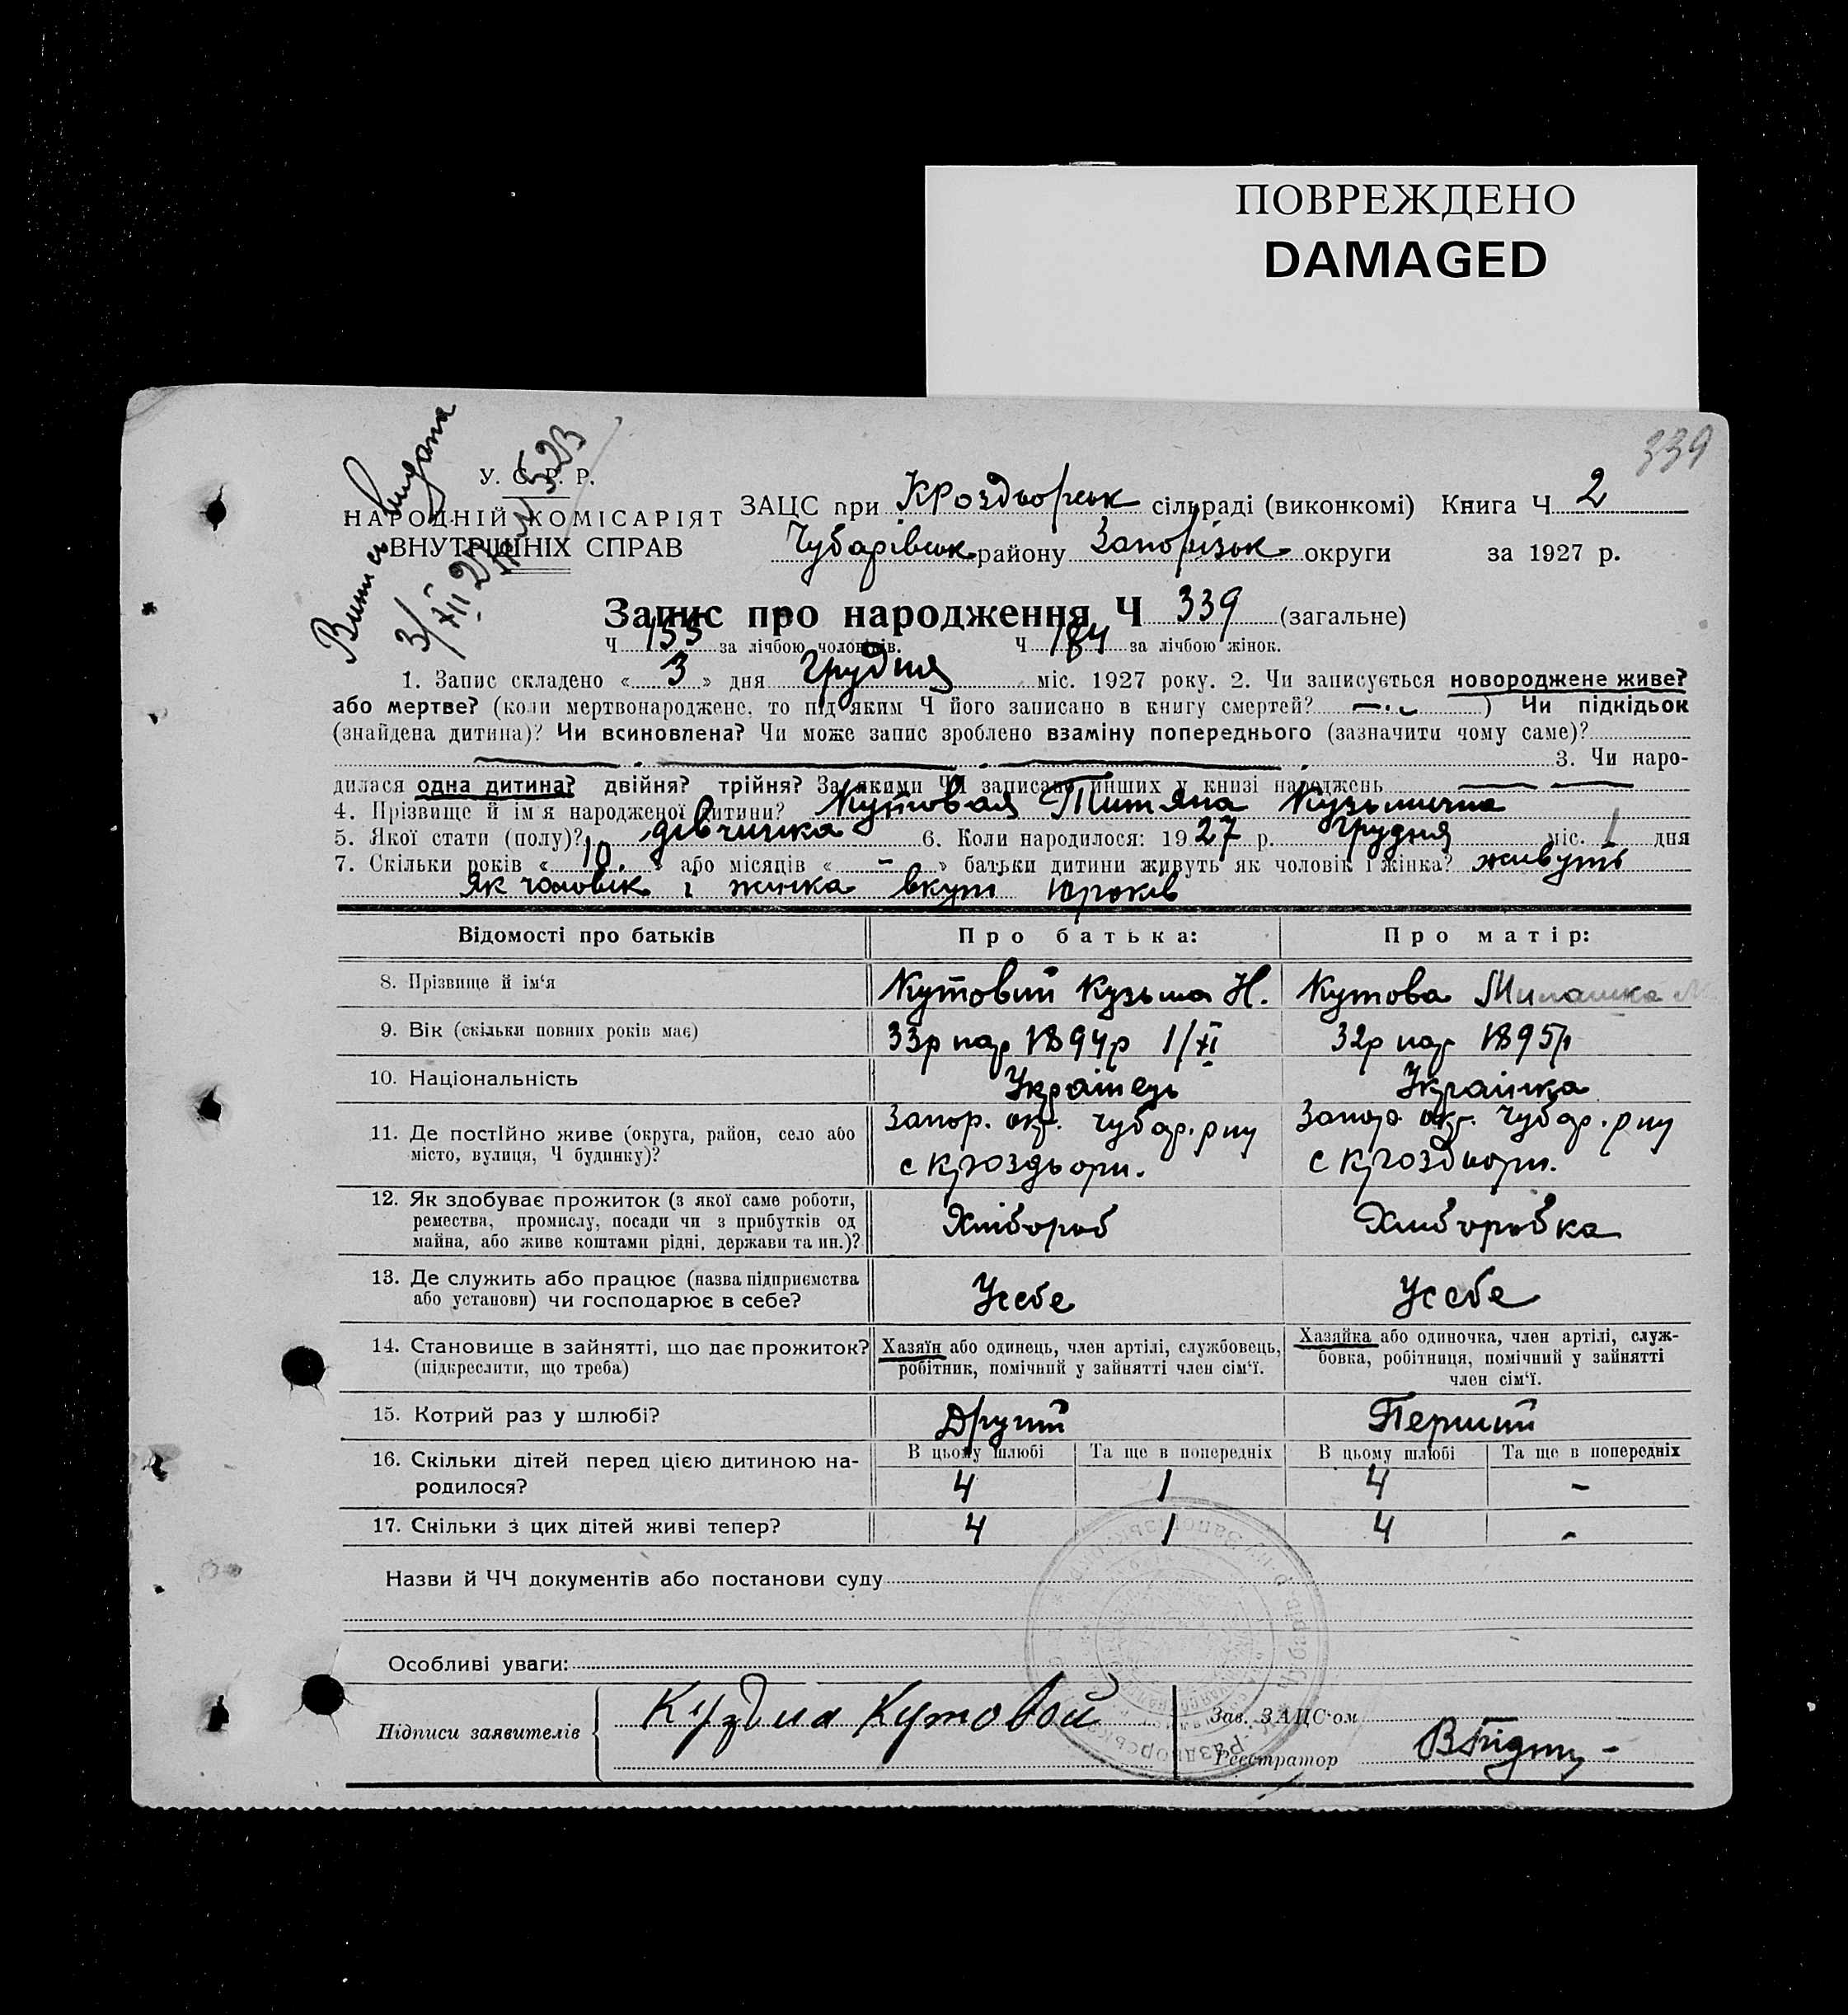 ПОВРЕЖДЕНО
DAMAGED
339
Виписъ видана
3/XII 27р
У. С. Р. Р.
НАРОДНІЙ КОМІСАРІЯТ
ВНУТРІШНІХ СПРАВ
ЗАЦС при КРоздьорськ сільраді (виконкомі) Книга Ч 2
Чубарівськ району Запорізьк округи за 1927 р.
Запис про народження Ч 339 (загальне)
Ч 155 за лічбою чоловіків. Ч 184 за лічбою жінок.
1. Запис складено « 3 » дня грудня міс. 1927 року. 2. Чи записується новороджене живе?
або мертве? (коли мертвонароджене, то під яким Ч його записано в книгу смертей? — ) Чи підкідьок
(знайдена дитина)? Чи всиновлена? Чи може запис зроблено взаміну попереднього (зазначити чому саме)?
3. Чи наро-
дилася одна дитина? двійня? трійня? За якими ЧЧ записано инших у книзі народжень
4. Прізвище й ім'я народженої дитини? Кутовая Титяна Кузьмична
5. Якої стати (полу)? дівчинка 6. Коли народилося: 1927 р. грудня міс. 1 дня
7. Скільки років « 10. » або місяців « - » батьки дитини живуть як чоловік і жінка? живуть
як чоловік і жинка вкупі 10 років
Відомості про батьків Про батька: Про матір:
8. Прізвище й ім'я Кутовий Кузьма Н. Кутова Милашка
9. Вік (скільки повних років має) 33р нар 1894р 1/XI 32р нар 1895р
10. Національність Українець Українка
11. Де постійно живе (округа, район, село або Запор. окр. Чубар. рну Запор окр. Чубар. рну
місто, вулиця, Ч будинку)? с Кроздьори. с Кроздьори.
12. Як здобуває прожиток (з якої саме роботи,
ремества, промислу, посади чи з прибутків од Хлібороб Хлиборобка
майна, або живе коштами рідні, держави та ин.)?
13. Де служить або працює (назва підприємства Усебе Усебе
або установи) чи господарює в себе?
14. Становище в зайнятті, що дає прожиток? Хазяїн або одинець, член артілі, службовець, Хазяйка або одиночка, член артілі, служ-
(підкреслити, що треба) робітник, помічний у зайнятті член сім'ї. бовка, робітниця, помічний у зайнятті
член сім'ї.
15. Котрий раз у шлюбі? Другий Перший
В цьому шлюбі Та ще в попередніх В цьому шлюбі Та ще в попередніх
16. Скільки дітей перед цією дитиною на-
родилося? 4 1 4 -
17. Скільки з цих дітей живі тепер? 4 1 4 -
Назви й ЧЧ документів або постанови суду
Особливі уваги:
Підписи заявителів Кузьма Кутовой Зав. ЗАЦС'ом
Реєстратор